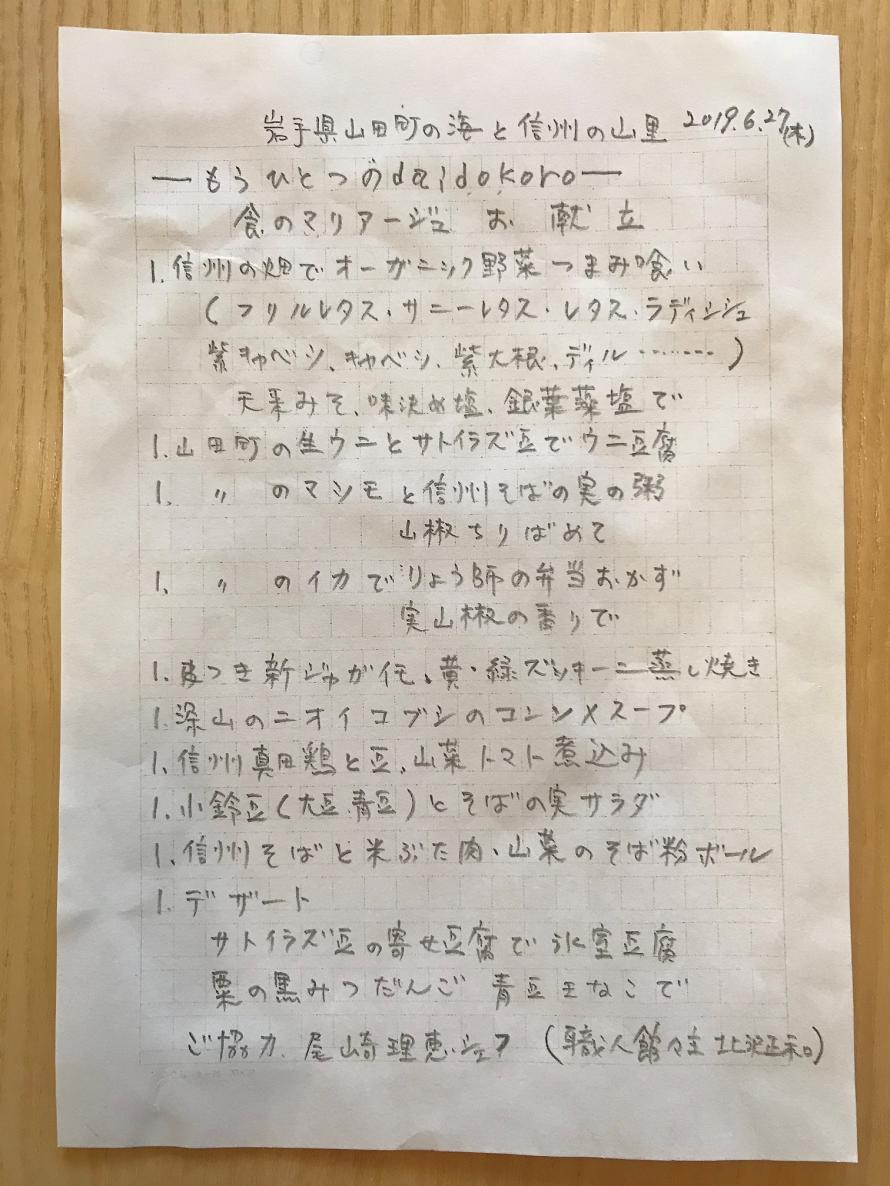 岩手県山田町の海と信州の山里 2019.6.27(木)
―もうひとつのdaidokoro―
食のマリアージュ お献立
1.信州の畑でオーガニック野菜つまみ喰い
(フリルレタス・サニーレタス・レタス・ラディシュ
紫キャベツ、キャベツ、紫大根、ディル………)
天釆みそ、味決め塩、銀葉藻塩で
1.山田町の生ウニとサトイラズ豆でウニ豆腐
1. 〃 のマツモと信州そばの実の粥
山椒ちりばめて
1. 〃 のイカでりょう師の弁当おかず
実山椒の香りで
1.皮つき新じゃが芋、黄・緑ズッキーニ蒸し焼き
1.深山のニオイコブシのコンソメスープ
1.信州真田鶏と豆、山菜トマト煮込み
1.小鈴豆(大豆、青豆)とそばの実サラダ
1.信州そばと米ぶた肉・山菜のそば粉ボール
1.デザート
サトイラズ豆の寄せ豆腐で氷室豆腐
粟の黒みつだんご 青豆きなこで
ご協力、尾崎理恵シェフ (職人館々主 北沢正和)